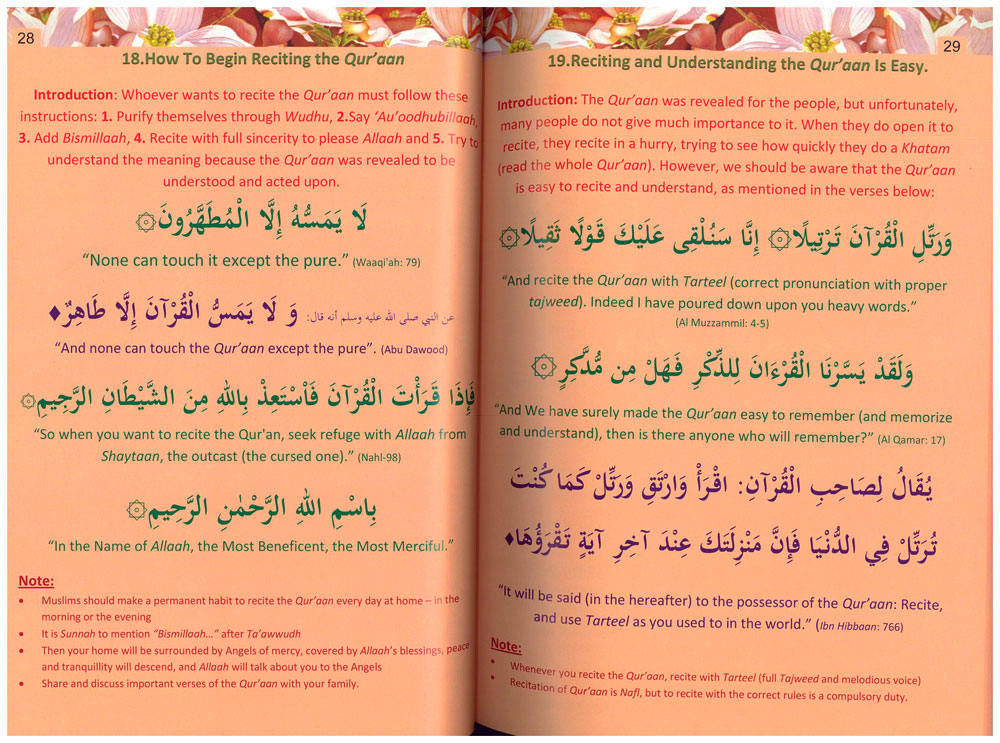 28
18.How To Begin Reciting the Qur’aan
Introduction: Whoever wants to recite the Qur’aan must follow these
instructions: 1. Purify themselves through Wudhu, 2.Say ‘Au’oodhubillaah,
3. Add Bismillaah, 4. Recite with full sincerity to please Allaah and 5. Try to
understand the meaning because the Qur’aan was revealed to be
understood and acted upon.
لَا يَمَسُّهُ إِلَّا الْمُطَهَّرُونَ۞
“None can touch it except the pure.” (Waaqi'ah: 79)
عن النبي صلى الله عليه وسلم أنه قال: وَ لَا يَمَسُّ الْقُرْآنَ إِلَّا طَاهِرٌ♦
“And none can touch the Qur’aan except the pure”. (Abu Dawood)
فَإِذَا قَرَأْتَ الْقُرْآنَ فَاسْتَعِذْ بِاللهِ مِنَ الشَّيْطَانِ الرَّجِيمِ۞
“So when you want to recite the Qur'an, seek refuge with Allaah from
Shaytaan, the outcast (the cursed one).” (Nahl-98)
بِاسْمِ اللهِ الرَّحْمٰنِ الرَّحِيمِ۞
“In the Name of Allaah, the Most Beneficent, the Most Merciful.”
Note:
• Muslims should make a permanent habit to recite the Qur’aan every day at home – in the
morning or the evening
• It is Sunnah to mention “Bismillaah…” after Ta’awwudh
• Then your home will be surrounded by Angels of mercy, covered by Allaah’s blessings, peace
and tranquillity will descend, and Allaah will talk about you to the Angels
• Share and discuss important verses of the Qur’aan with your family.
29
19.Reciting and Understanding the Qur’aan Is Easy.
Introduction: The Qur’aan was revealed for the people, but unfortunately,
many people do not give much importance to it. When they do open it to
recite, they recite in a hurry, trying to see how quickly they do a Khatam
(read the whole Qur’aan). However, we should be aware that the Qur’aan
is easy to recite and understand, as mentioned in the verses below:
وَرَتِّلِ الْقُرْآنَ تَرْتِيلًا۞ إِنَّا سَنُلْقِى عَلَيْكَ قَوْلًا ثَقِيلًا۞
“And recite the Qur’aan with Tarteel (correct pronunciation with proper
tajweed). Indeed I have poured down upon you heavy words.”
(Al Muzzammil: 4-5)
وَلَقَدْ يَسَّرْنَا الْقُرْءَانَ لِلذِّكْرِ فَهَلْ مِن مُّدَّكِرٍ۞
“And We have surely made the Qur’aan easy to remember (and memorize
and understand), then is there anyone who will remember?” (Al Qamar: 17)
يُقَالُ لِصَاحِبِ الْقُرْآنِ: اقْرَأْ وَارْتَقِ وَرَتِّلْ كَمَا كُنْتَ
تُرَتِّلُ فِي الدُّنْيَا فَإِنَّ مَنْزِلَتَكَ عِنْدَ آخِرِ آيَةٍ تَقْرَؤُهَا♦
“It will be said (in the hereafter) to the possessor of the Qur’aan: Recite,
and use Tarteel as you used to in the world.” (Ibn Hibbaan: 766)
Note:
• Whenever you recite the Qur’aan, recite with Tarteel (full Tajweed and melodious voice)
• Recitation of Qur’aan is Nafl, but to recite with the correct rules is a compulsory duty.